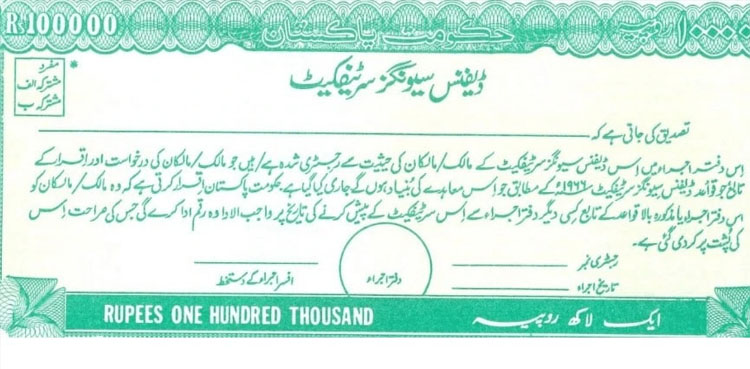 R100000 حکومت پاکستان ۱۰۰۰۰۰ روپیہ
مفرد *
مشترکہ الف
مشترکہ ب
ڈیفنس سیونگز سرٹیفکیٹ
تصدیق کی جاتی ہے کہ
اِس دفترِ اجراء میں اِس ڈیفنس سیونگز سرٹیفکیٹ کے مالک/مالکان کی حیثیت سے رجسٹری شدہ ہے/ہیں جو مالک/مالکان کی درخواست اور اقرار کے
تابع جو قواعد ڈیفنس سیونگز سرٹیفکیٹ ۱۹۶۶ء کے مطابق جو اِس معاہدے کی بُنیاد ہوں گے جاری کیا گیا ہے۔ حکومت پاکستان اقرار کرتی ہے کہ وہ مالک/مالکان کو
اِس دفترِ اجراء یا مذکورہ بالا قواعد کے تابع کسی دیگر دفترِ اجراء سے اِس سرٹیفکیٹ کے پیش کرنے کی تاریخ پر واجب الادا وہ رقم ادا کرے گی جس کی صراحت اِس
کی پُشت پر کر دی گئی ہے۔
رجسٹری نمبر
تاریخ اجراء
دفترِ اجراء
افسرِ اجراء کے دستخط
RUPEES ONE HUNDRED THOUSAND ایک لاکھ روپیہ